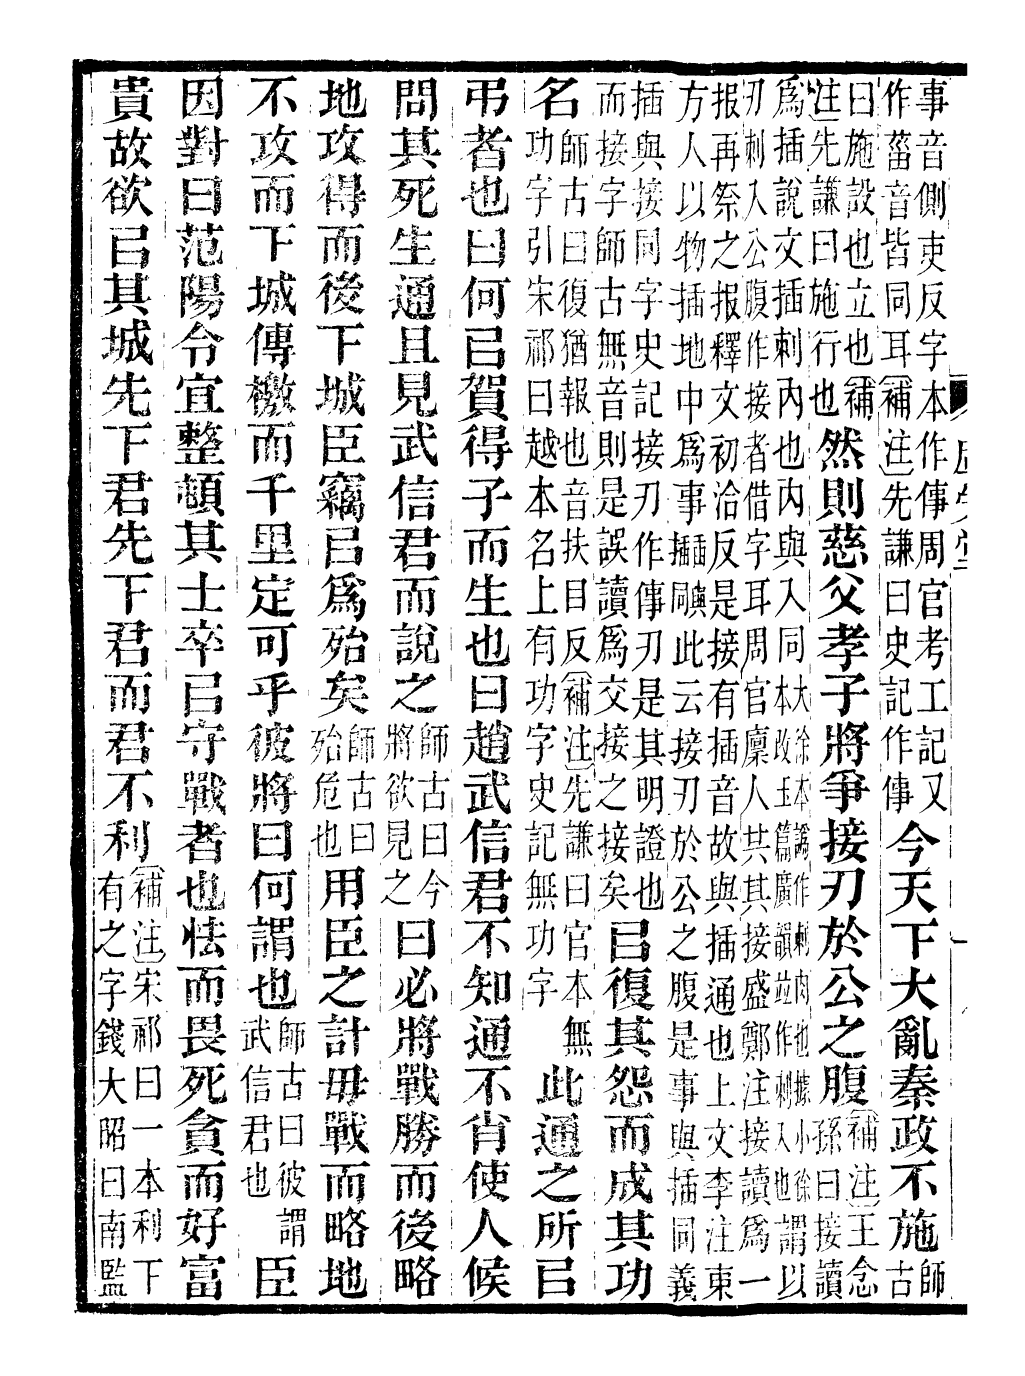 事音側吏反字本作倳周官考工記又
作菑音皆同耳[補注]先謙曰史記作倳
今天下大亂秦政不施
師古
曰施設也立也[補
注]先謙曰施行也
然則慈父孝子將爭接刃於公之腹
[補注]王念
孫曰接讀
爲插說文插刺內也內與入同
大徐本譌作刺肉也據小徐
本改玉篇廣韻並作刺入也
謂以
刃刺入公腹作接者借字耳周官廩人共其接盛鄭注接讀爲一
报再祭之报釋文初洽反是接有插音故與插通也上文李注東
方人以物插地中爲事
臿與
插同
此云接刃於公之腹是事與插同義
插與接同字史記接刃作倳刃是其明證也
而接字師古無音則是誤讀爲交接之接矣
㠯復其怨而成其功
名
師古曰復猶報也音扶目反[補注]先謙曰官本無
功字引宋祁曰越本名上有功字史記無功字
此通之所㠯
弔者也曰何㠯賀得子而生也曰趙武信君不知通不肖使人候
問其死生通且見武信君而說之
師古曰今
將欲見之
曰必將戰勝而後略
地攻得而後下城臣竊㠯爲殆矣
師古曰
殆危也
用臣之計毋戰而略地
不攻而下城傳檄而千里定可乎彼將曰何謂也
師古曰彼謂
武信君也
臣
因對曰范陽令宜整頓其士卒㠯守戰者也怯而畏死貪而好富
貴故欲㠯其城先下君先下君而君不利
[補注]宋祁曰一本利下
有之字錢大昭曰南監